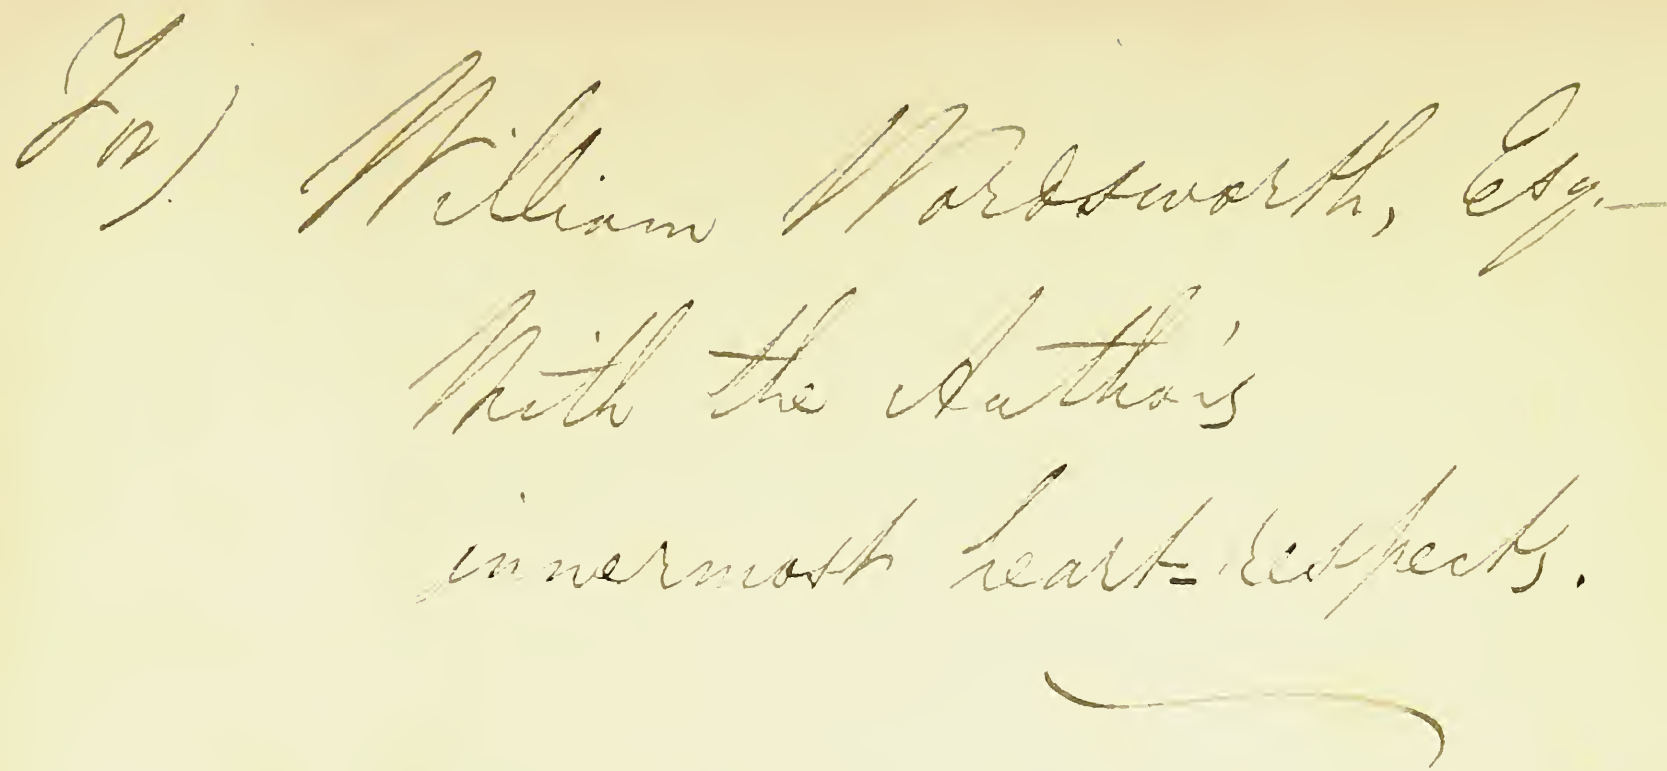 For) William Wordsworth, Esq.—
With the Author's
innermost heart-respects.